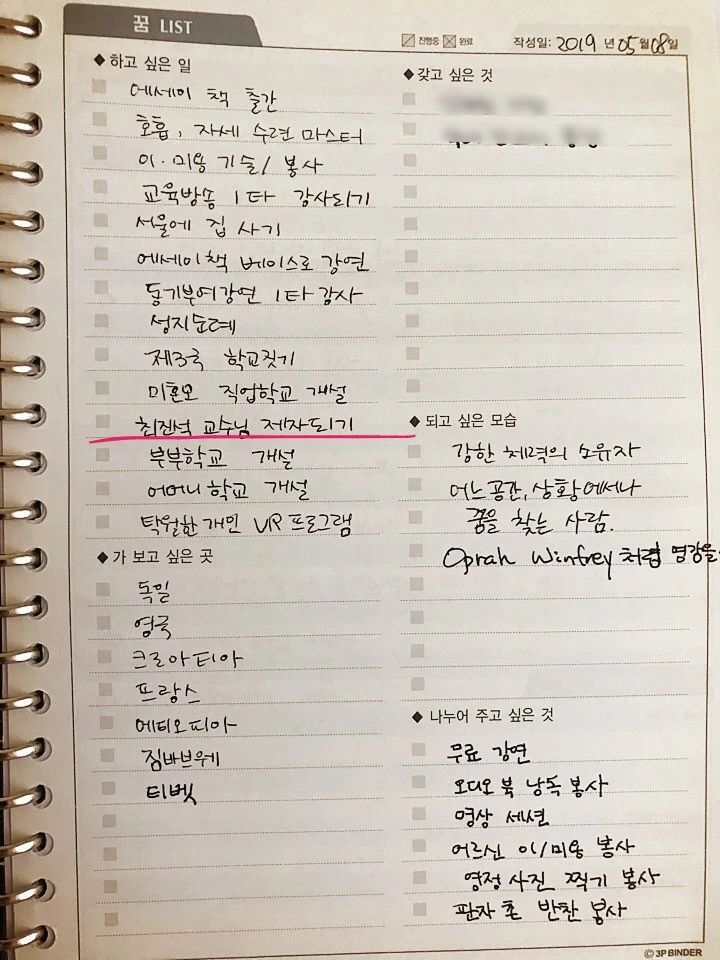 꿈 LIST
진행중 완료 작성일: 2019 년 05월 08일
◆ 하고 싶은 일
에세이 책 출간
호흡, 자세 수련 마스터
이·미용 기술/ 봉사
교육방송 1타 강사되기
서울에 집 사기
에세이책 베이스로 강연
동기부여강연 1타강사
성지순례
제3국 학교짓기
미혼모 직업학교 개설
최진석 교수님 제자되기
부부학교 개설
어머니학교 개설
탁월한 개인 VIP 프로그램
◆ 가 보고 싶은 곳
독일
영국
크로아티아
프랑스
에티오피아
짐바브웨
티벳
◆ 갖고 싶은 것
◆ 되고 싶은 모습
강한 체력의 소유자
어느공간,상황에서나
꿈을 찾는 사람.
Oprah Winfrey처럼 영감을
◆ 나누어 주고 싶은 것
무료 강연
오디오북 낭독 봉사
명상 세션
어르신 이/미용 봉사
영정사진 찍기 봉사
판자촌 반찬 봉사
© 3P BINDER